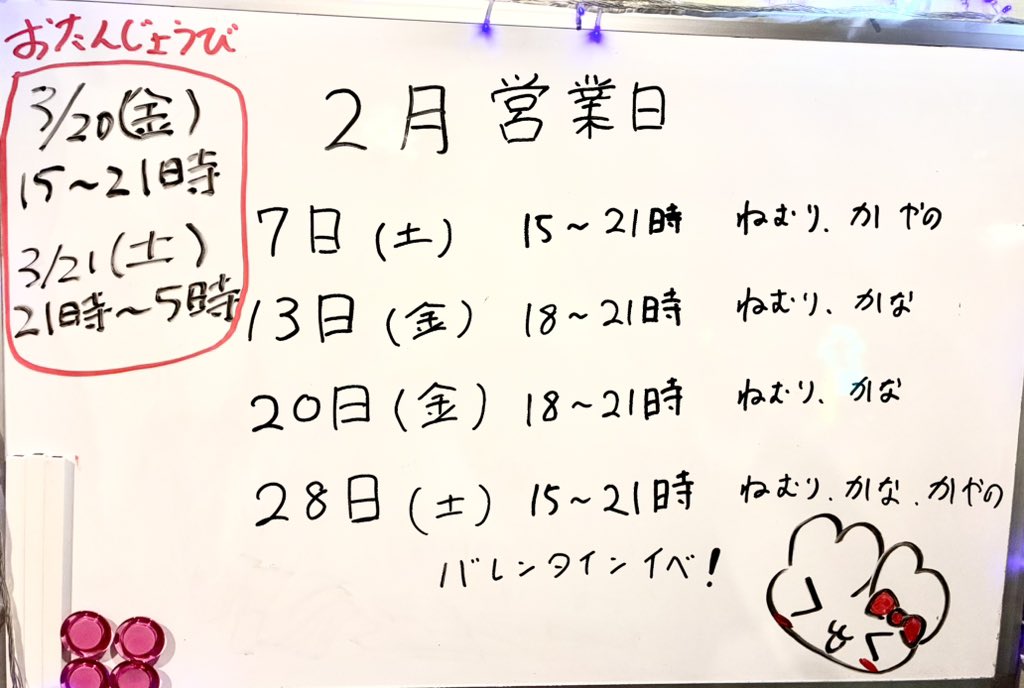 おたんじょうび
3/20(金)
15~21時
3/21(土)
21時~5時
2月 営業日
7日(土) 15~21時 ねむり、かやの
13日(金) 18~21時 ねむり、かな
20日(金) 18~21時 ねむり、かな
28日(土) 15~21時 ねむり、かな、かやの
バレンタインイベ!